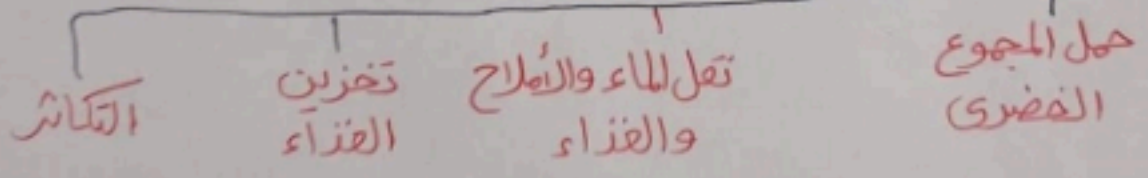 حمل المجموع
الخضرى
نقل الماء والأملاح
والغذاء
تخزين
الغذاء
التكاثر